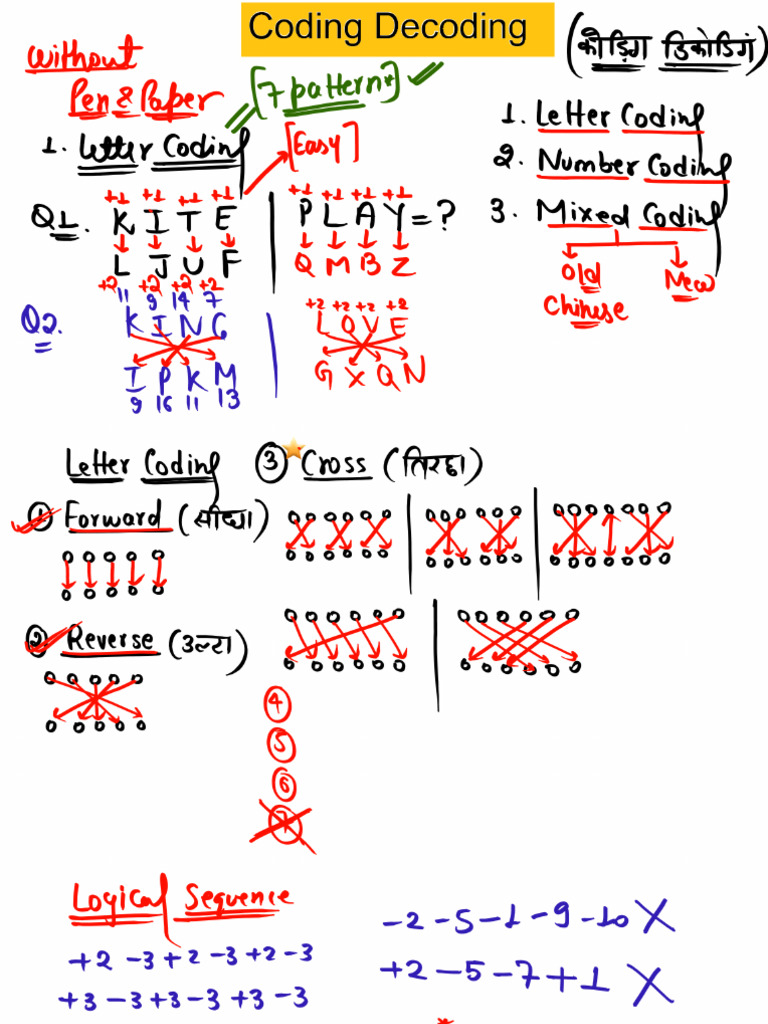 Coding Decoding
(कोडिंग डिकोडिंग)
Without
Pen & Paper
[7 pattern*]
1. Letter Coding
[Easy]
1. Letter Coding
2. Number Coding
3. Mixed Coding
Old New
Chinese
+1 +1 +1 +1 +1 +1 +1 +1
Q1. K I T E P L A Y = ?
L J U F Q M B Z
+2 +2 +2 +2 +2 +2 +2 +2
11 9 14 7
Q2. K I N G L O V E
I P K M G X Q N
9 16 11 13
Letter Coding
③ Cross (तिरछा)
① Forward (सीधा)
② Reverse (उल्टा)
④
⑤
⑥
⑦
Logical Sequence
+2 -3 +2 -3 +2 -3
+3 -3 +3 -3 +3 -3
-2 -5 -1 -9 -10 X
+2 -5 -7 +1 X